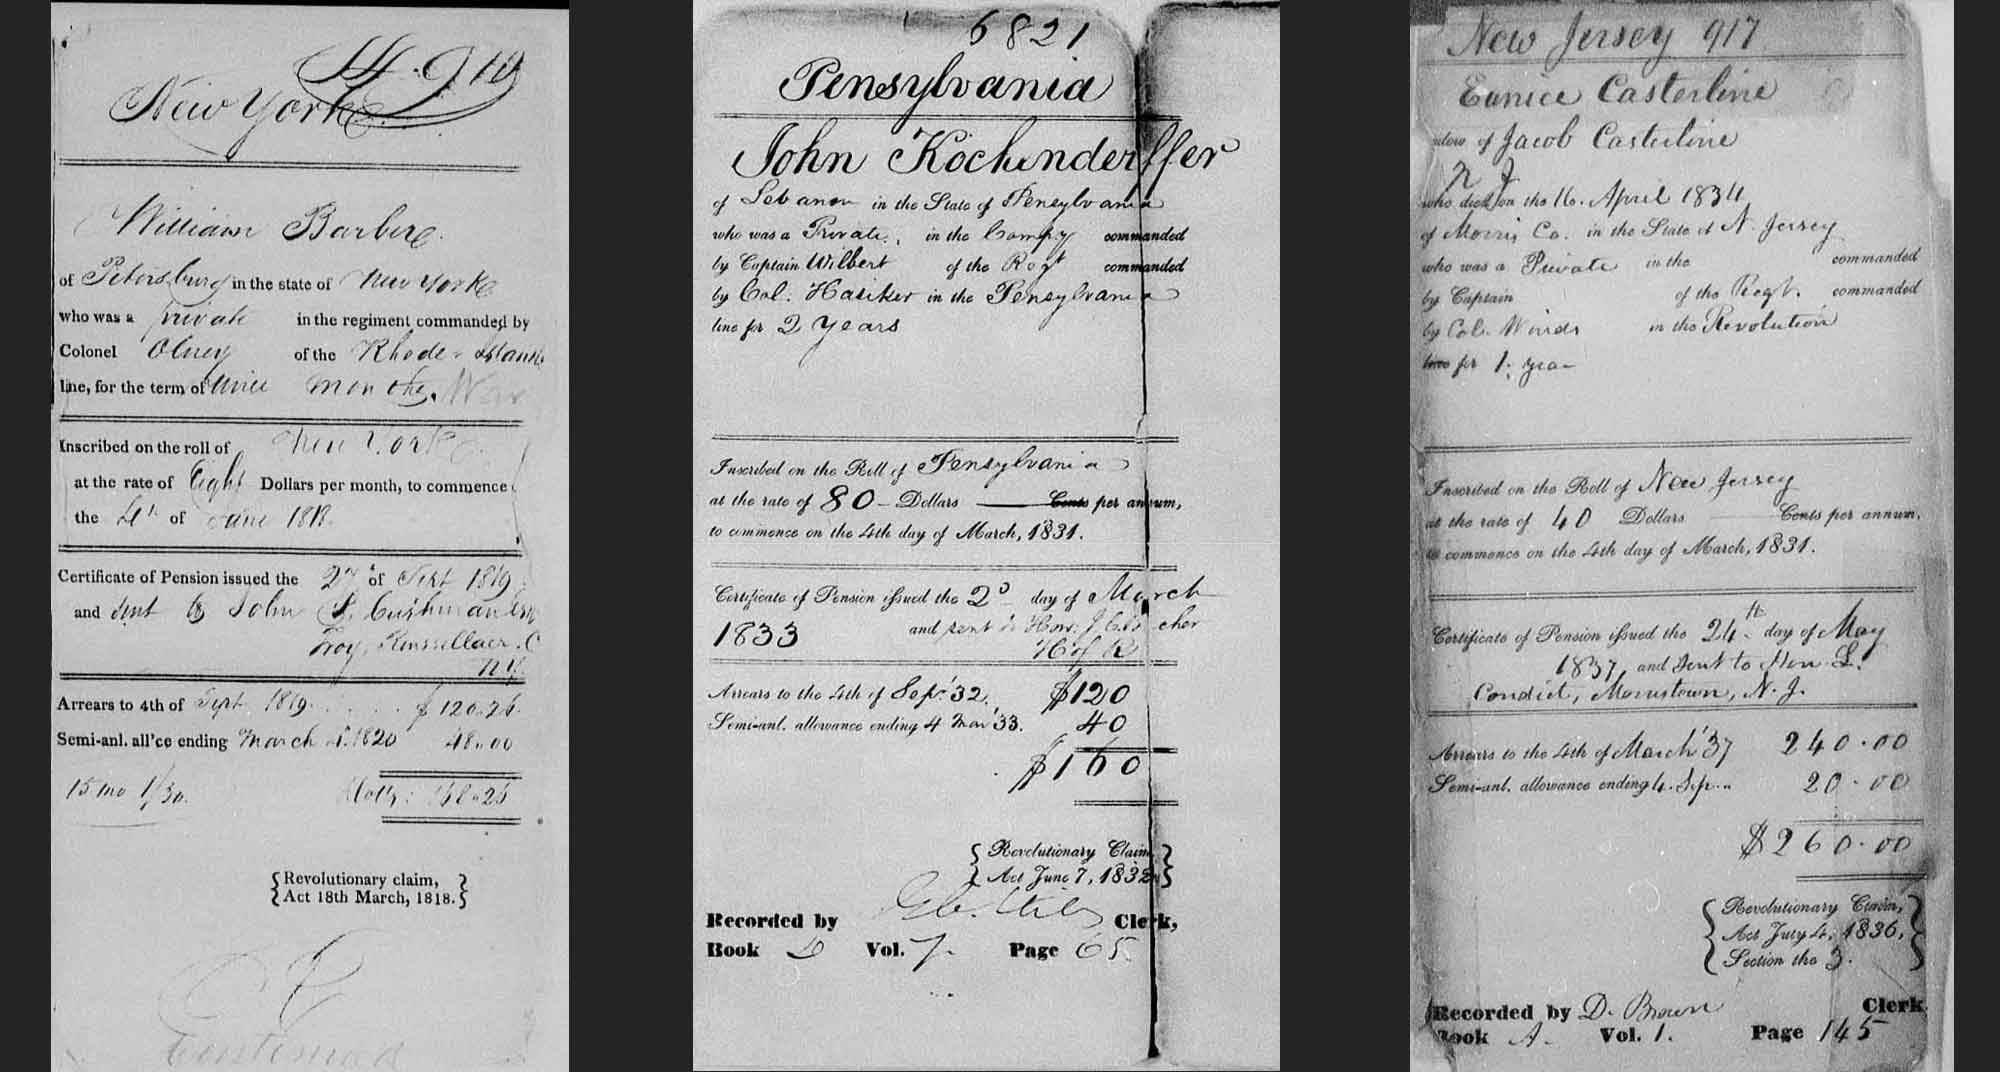 New York
William Barber
of Petersburg in the state of New York
who was a private in the regiment commanded by
Colonel Olney of the Rhode Island
line, for the term of nine months.
Inscribed on the roll of New York
at the rate of Eight Dollars per month, to commence
the 4th of June 1818.
Certificate of Pension issued the 27 of Sept 1819
and sent to John P. Cushman Esq
Troy, Renssellaer C
N.Y.
Arrears to 4th of Sept 1819. $ 120.26
Semi-anl. all'ce ending March 4. 1820 48.00
15 mo 1/30. 168.26
Revolutionary claim,
Act 18th March, 1818.
6821
Pensylvania
John Kochenderffer
of Lebanon in the State of Pensylvania
who was a Private in the Compy commanded
by Captain Wilbert of the Regt commanded
by Col. Hasiker in the Pensylvania
line for 2 years
Inscribed on the Roll of Pensylvania
at the rate of 80 Dollars Cents per annum,
to commence on the 4th day of March, 1831.
Certificate of Pension issued the 2d day of March
1833 and sent to Hon. J.
H of R
Arrears to the 4th of Sep. '32. $120
Semi-anl. allowance ending 4 Mar '33. 40
$160
Revolutionary Claim,
Act June 7, 1832
Recorded by Clerk,
Book D Vol. 7. Page 65
New Jersey 917
Eunice Casterline
widow of Jacob Casterline
N J
who died on the 16. April 1834
of Morris Co. in the State of N. Jersey
who was a Private in the commanded
by Captain of the Regt. commanded
by Col. Winds in the Revolution
line for 1. year
Inscribed on the Roll of New Jersey
at the rate of 40 Dollars Cents per annum,
to commence on the 4th day of March, 1831.
Certificate of Pension issued the 24th day of May
1837, and sent to Hon L.
Condict, Morristown, N. J.
Arrears to the 4th of March '37 240.00
Semi-anl. allowance ending 4. Sep. 20.00
$260.00
Revolutionary Claim,
Act July 4, 1836,
Section the 3.
Recorded by D. Brown Clerk
Book A. Vol. 1. Page 145